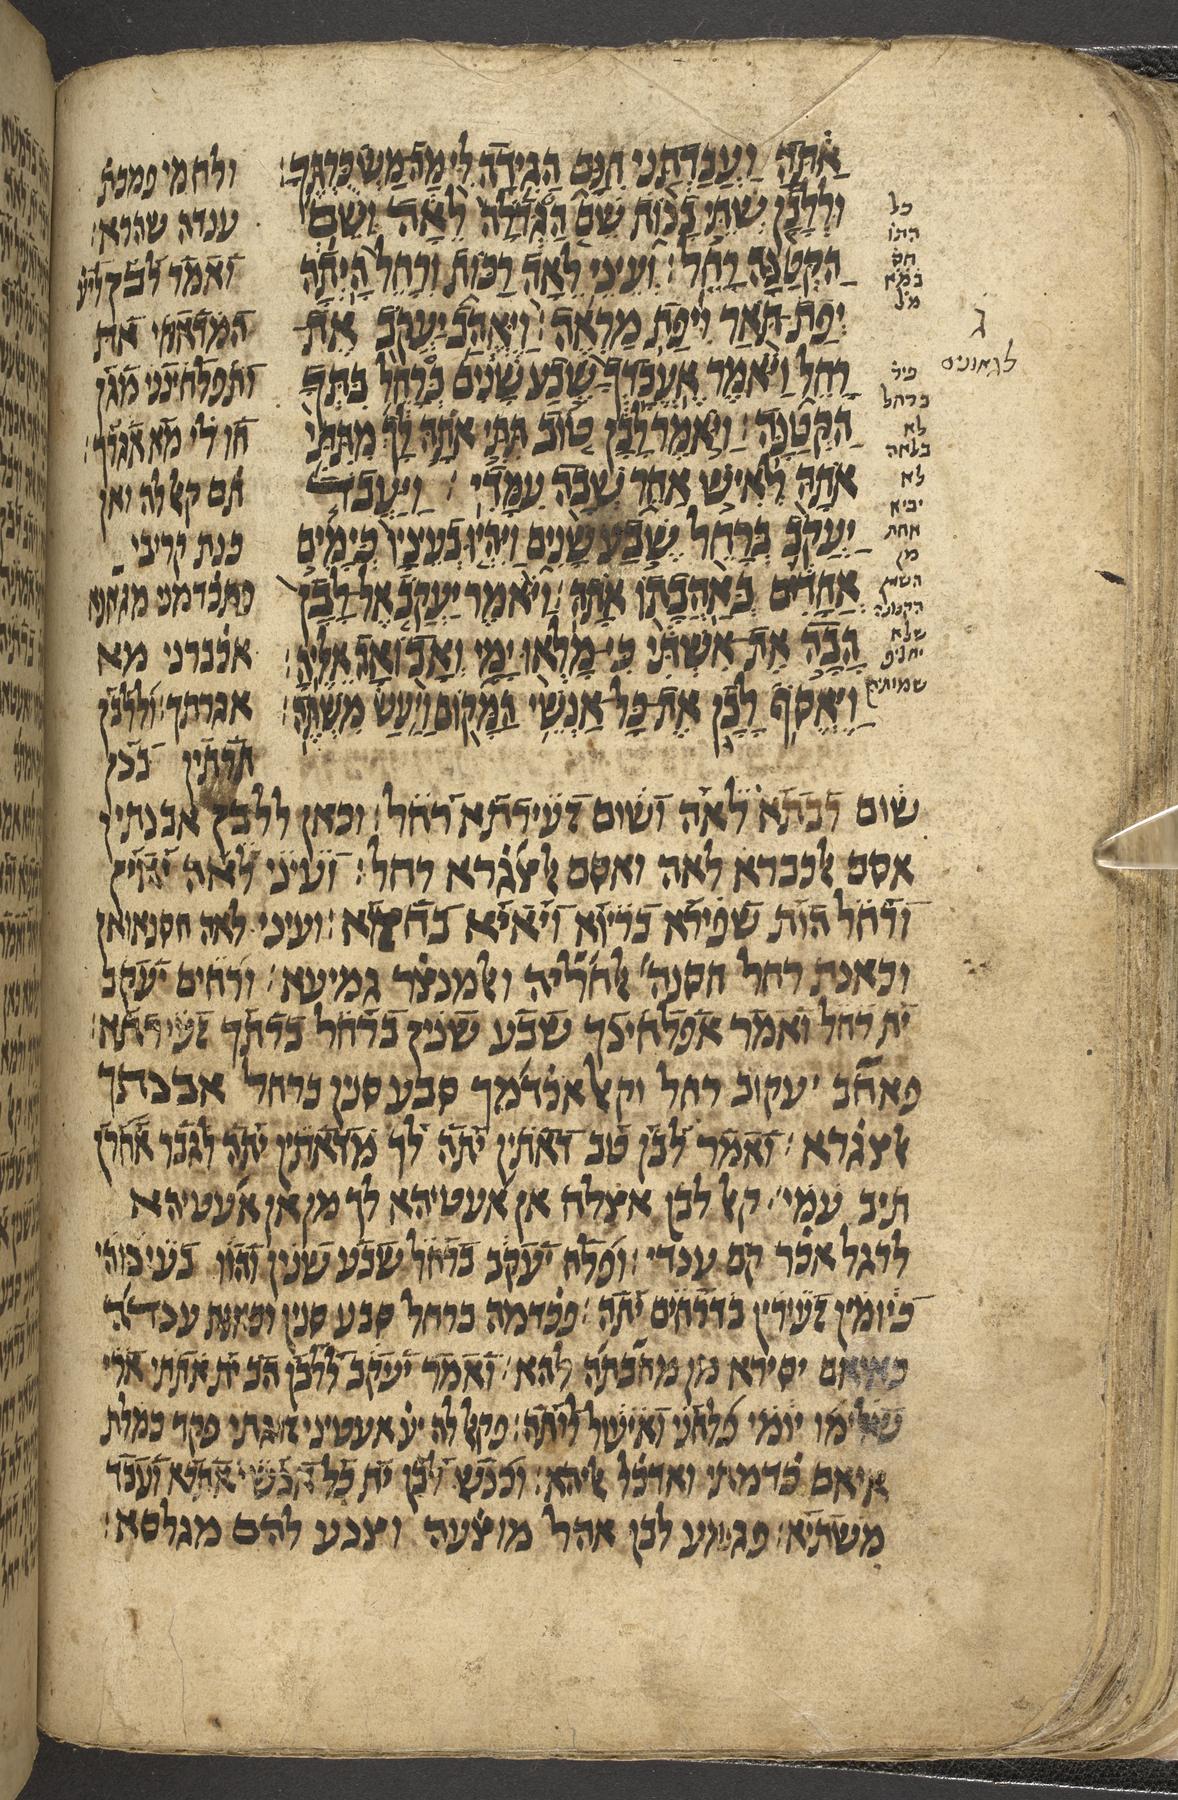 אַתָּה וַעֲבַדְתַּנִי חִנָּם הַגִּידָה לִּי מַה מַשְׂכֻּרְתֶּךָ׃
וּלְלָבָן שְׁתֵּי בָנוֹת שֵׁם הַגְּדֹלָה לֵאָה וְשֵׁם
הַקְּטַנָּה רָחֵל׃ וְעֵינֵי לֵאָה רַכּוֹת וְרָחֵל הָיְתָה
יְפַת תֹּאַר וִיפַת מַרְאֶה׃ וַיֶּאֱהַב יַעֲקֹב אֶת
רָחֵל וַיֹּאמֶר אֶעֱבָדְךָ שֶׁבַע שָׁנִים בְּרָחֵל בִּתְּךָ
הַקְּטַנָּה׃ וַיֹּאמֶר לָבָן טוֹב תִּתִּי אֹתָהּ לָךְ מִתִּתִּי
אֹתָהּ לְאִישׁ אַחֵר שְׁבָה עִמָּדִי׃ וַיַּעֲבֹד
יַעֲקֹב בְּרָחֵל שֶׁבַע שָׁנִים וַיִּהְיוּ בְעֵינָיו כְּיָמִים
אֲחָדִים בְּאַהֲבָתוֹ אֹתָהּ׃ וַיֹּאמֶר יַעֲקֹב אֶל לָבָן
הָבָה אֶת אִשְׁתִּי כִּי מָלְאוּ יָמָי וְאָבוֹאָה אֵלֶיהָ׃
וַיֶּאֱסֹף לָבָן אֶת כָּל אַנְשֵׁי הַמָּקוֹם וַיַּעַשׂ מִשְׁתֶּה׃
ולחמי פמכת
ענדה שהרא׃
ואמר לבן ליע
המדאחי את
ותפלחינני מגן
חוי לי מא אגרך׃
תם קאל לה ואן
כנת קריבי
פתכדמני מגאנא
אכברני מא
אגרתך׃ וללבן
תרתין בנן
כל
התו
חס
במא
מל
פיר
ברחל
לא
בלאה
לא
יביא
אחת
מן
השם
הקטנה
שלא
יחליפ
שמותיהן
ג
לגאונים
שום רבתא לאה ושום זעירתא רחל׃ וכאן ללבן אבנתין
אסם אלכברא לאה ואסם אלצגרא רחל׃ ועיני לאה יאוין
ורחל הות שפירא בריוא ויאיא בחזוא׃ ועיני לאה חסנאואן
וכאנת רחל חסנה אלחליה ואלמנצר גמיעא׃ ורחים יעקב
ית רחל ואמר אפלחינך שבע שנין ברחל ברתך זעירתא׃
פאחב יעקוב רחל וקאל אכדמך סבע סנין ברחל אבנתך
אלצגרא׃ ואמר לבן טב דאתין יתה לך מדאתין יתה לגבר אחרן
תיב עמי׃ קאל לבן אצלח אן אעטיהא לך מן אן אעטיהא
לרגל אכר קם ענדי׃ ופלח יעקב ברחל שבע שנין והוו בעינוהי
כיומין זעירין בדרחים יתה׃ פכדמה ברחל סבע סנין וכאנת ענדה
כאיאם יסירא מן מחבתה להא׃ ואמר יעקב ללבן הב ית אתתי ארי
שלימו יומי פלחני ואיעול לותה׃ פקאל לה יע אעטיני זוגתי פקד כמלת
איאם כדמתי ואדכל אליהא׃ וכנש לבן ית כל אנשי אתרא ועבד
משתיא׃ פגמע לבן אהל מוצעה וצנע להם מגלסא׃